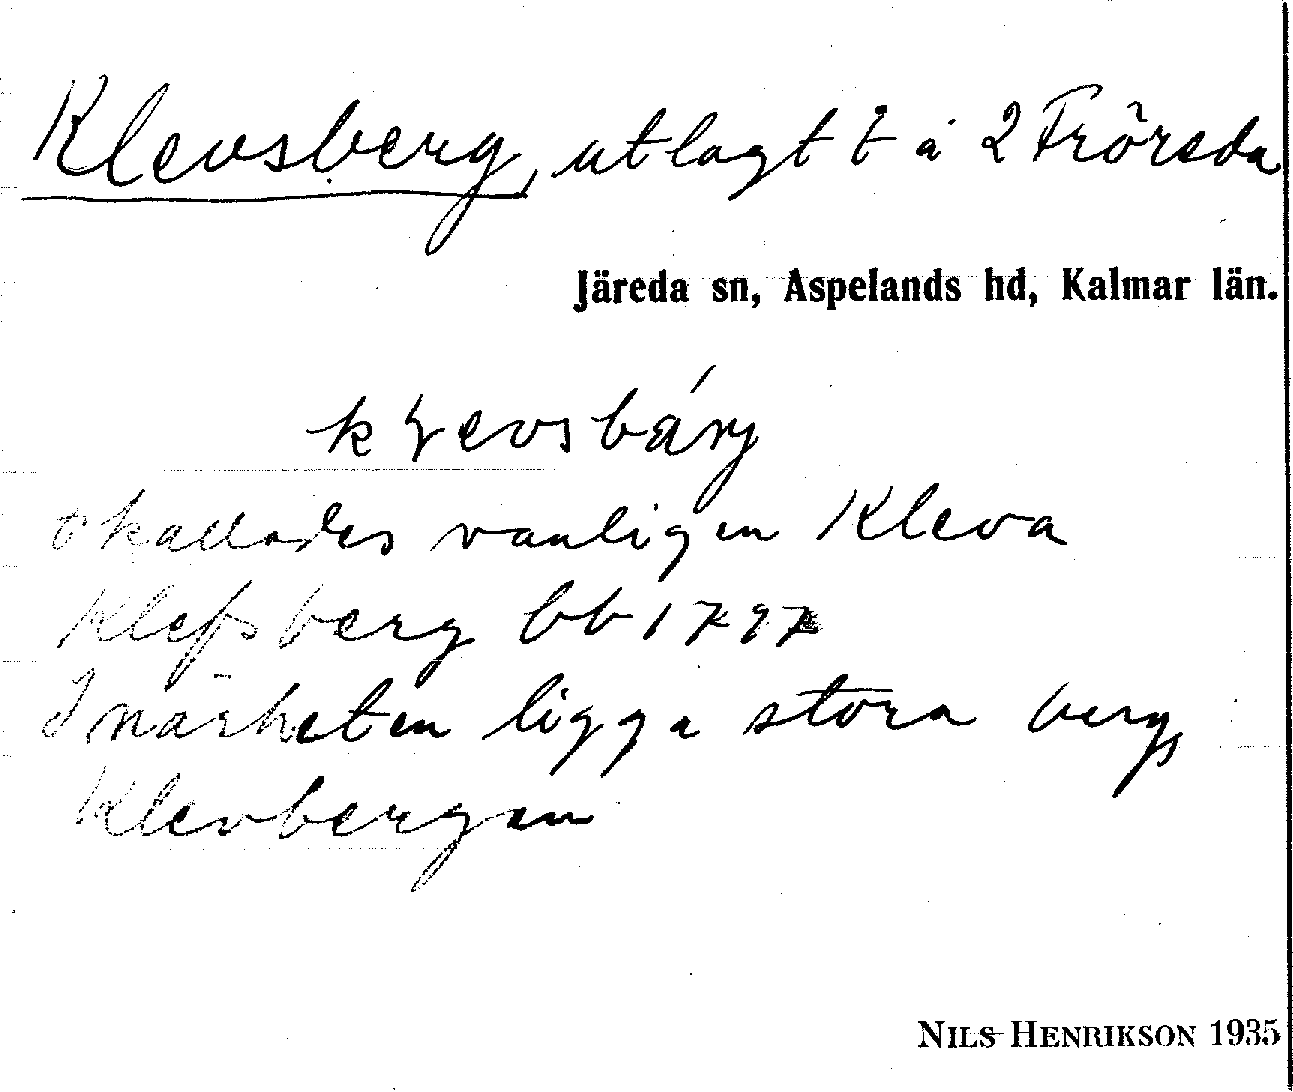 Klevsberg, utlagt t å 2 Fröreda
Järeda sn, Aspelands hd, Kalmar län.
kallades vanligen Kleva
Klefsberg bb 1797
I närheten ligga stora berg,
Klevbergen
NILS HENRIKSON 1935